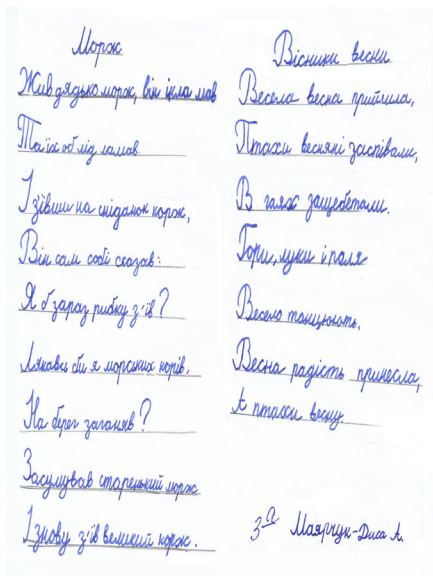 Морж
Жив дядько морж, він ікла мав
Та їх об лід ламав
І з'ївши на сніданок корж,
Він сам собі сказав:
Я б зараз рибку з'їв?
Лякавсь би я морських корів,
На берег заганяв?
Засумував старенький морж
І знову з'їв великий корж.
Вісники весни
Весела весна прийшла,
Птахи весняні заспівали,
В гаях защебетали.
Гори, луки і поля
Весело танцюють.
Весна радість принесла,
А птахи весну.
3-а Маярчук-Диса А.